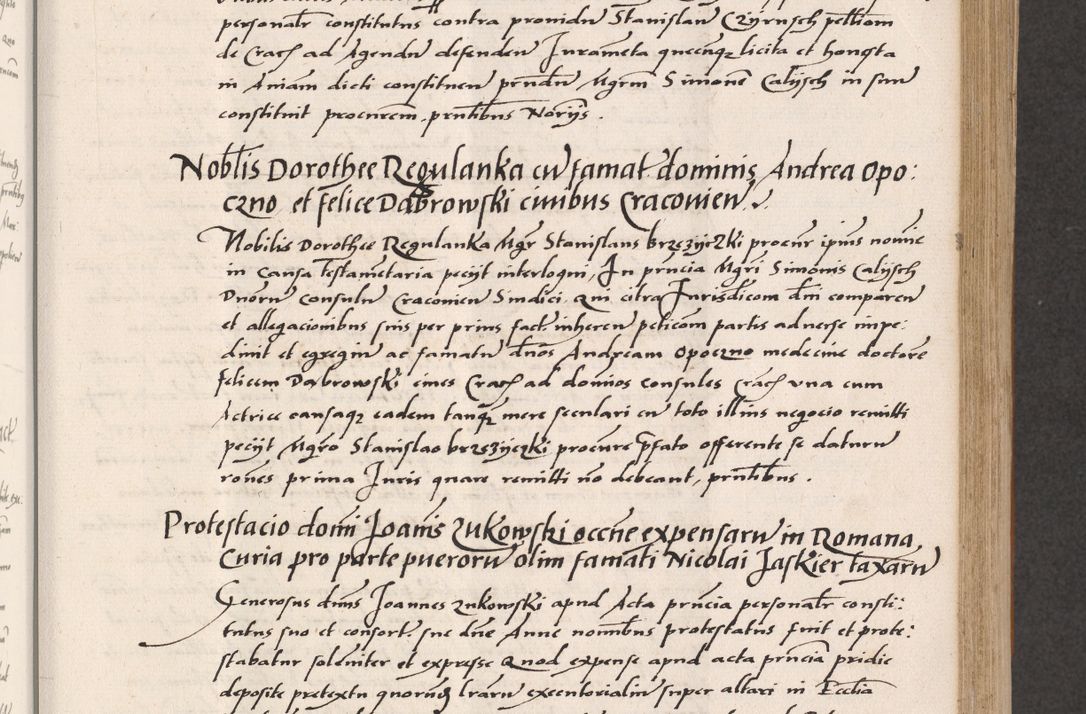 personalr constitutus contra prouidu Stanislau Czyrnsch pellionem
de Crach ad Agendu defendeu Iurameta quecunqz licita et honesta
in Aniam dicti constitueu prndu Mgrm Simone Calijsch in suu
constituit procurem, prntibus Norijs.
Noblis Dorothee Regulanka cu famat. dominis Andrea Opo:
czno et felice Dabrowski ciuibus Cracouien
Nobilis Dorothee Regulanka Mgr Stanislaus brzezyczki procur ipius nomie
in causa Testametaria pecijt interloqui, In prncia Mgri Simonis Calijsch
Dnoru Consulu Cracouien Sindici qui citra Iurisdicom dni comparen
et allegacionibus suis per prius fact. inheren peticom partis aduerse impe:
diuit et egregiu ac famatu dnos Andream Opoczno medecine doctore
felicem Dabrowski ciues Crach ad domios Consules Crach vna cum
Actrice causaqz eadem tanqz mere seculari cu toto illius negocio remitti
pecijt Mgro Stanislao brzezyczki procure pfato offerente se daturu
rones prima Iuris quare remitti no debeant, prntibus.
Protestacio domi Ioanis Zukowski occne expensaru in Romana
Curia pro parte pueroru olim famati Nicolai Jaskier taxaru
Generosus dnus Joannes zukowski apud Acta prncia personalr consti:
tutus suo et consort. sue dne Anne nomibus protestatus fuit et prote:
stabatur soleniter et expresse Quod expense apud acta prncia pridie
deposite pretextu quorucunqz lraru executorialiu super altari in Ecclia